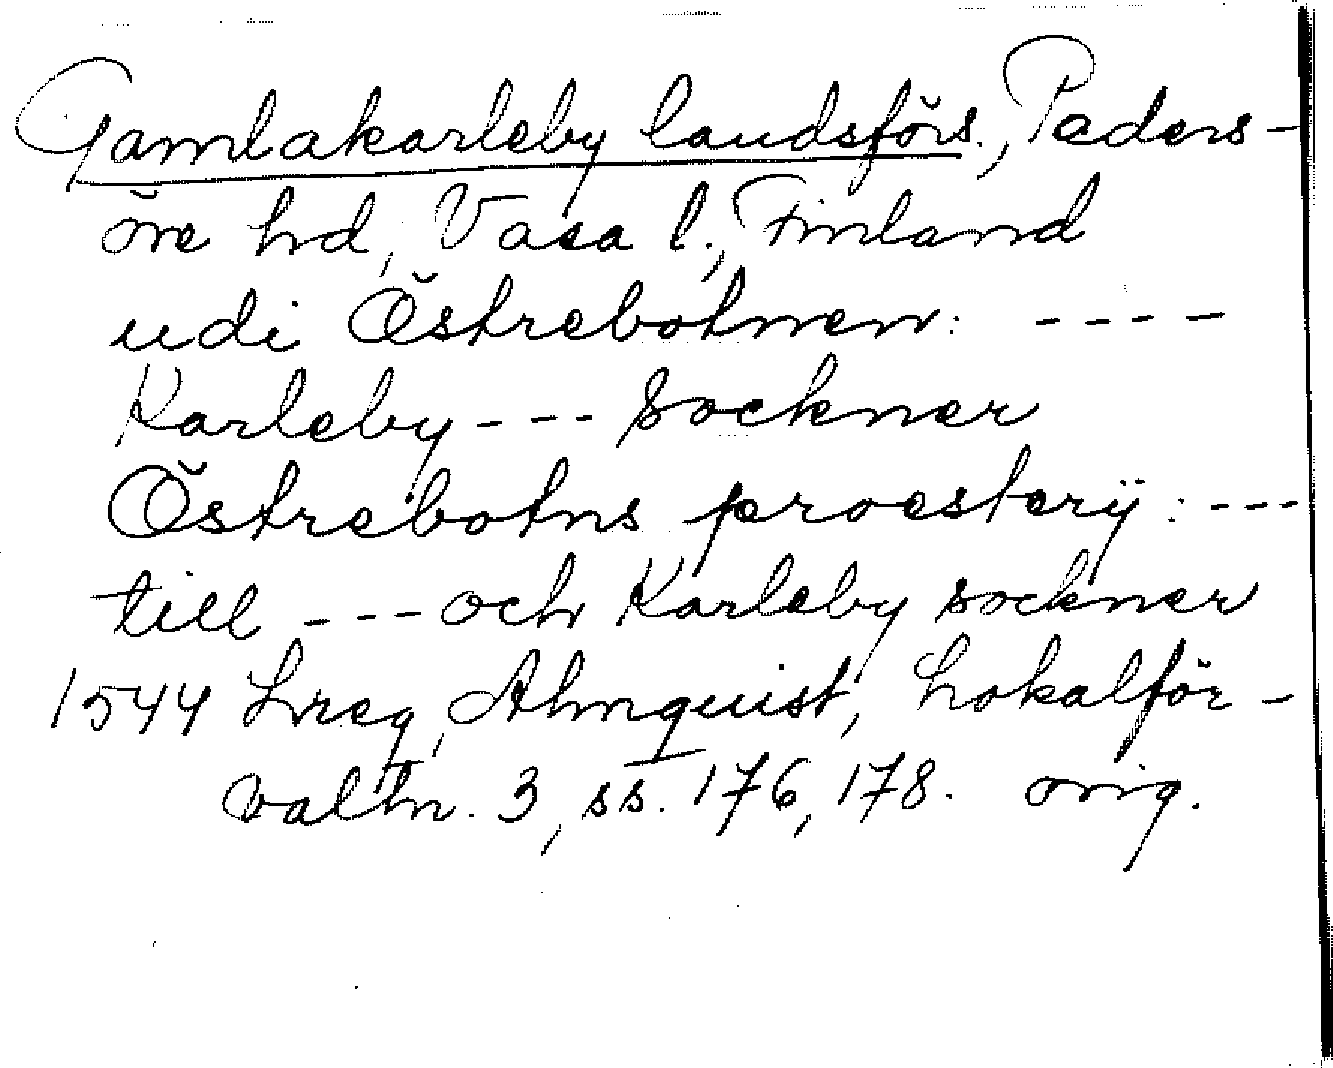 Gamlakarleby landsförs., Peders-
öre hd, Vasa l., Finland
udi Östrebotnnen: ----
Karleby --- Sockner
Östrebotns proesterÿ: ---
till --- och Karleby sockner
1544 Lreg, Almquist, Lokalför-
valtn. 3, ss. 176, 178. orig.